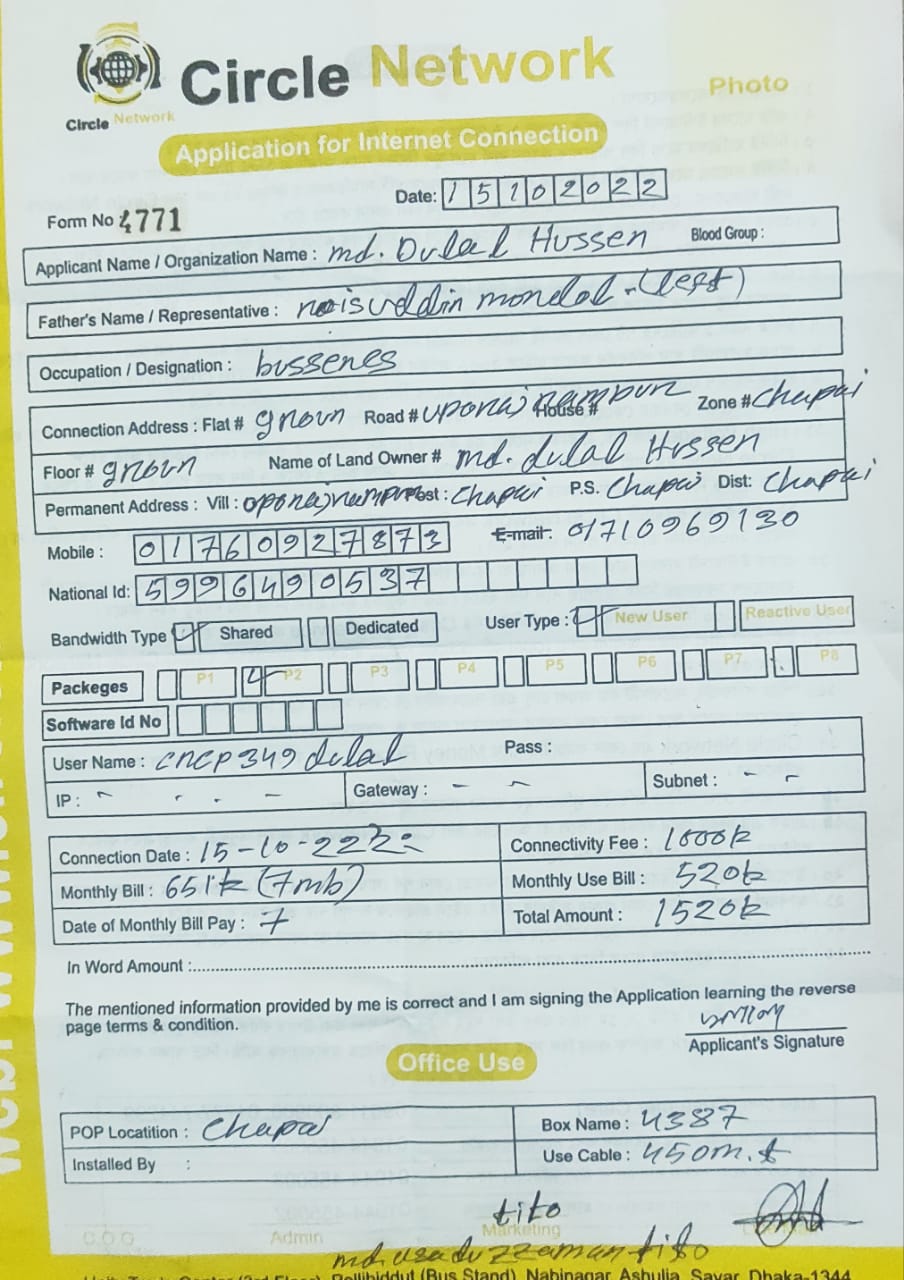 Circle Network
Circle Network
Photo
Application for Internet Connection
Date: 15102022
Form No 4771
Applicant Name / Organization Name : md. Dulal Hussen Blood Group :
Father's Name / Representative : noisuddin mondal - (lest)
Occupation / Designation : bussenes
Connection Address : Flat # groun Road # uporajrampur House # Zone # Chapai
Floor # groun Name of Land Owner # md. dulal Hussen
Permanent Address : Vill : oporajrampur Post : Chapai P.S. Chapai Dist: Chapai
Mobile : 01760927873 E-mail : 01710969130
National Id: 5996490537
Bandwidth Type Shared Dedicated User Type : New User Reactive User
Packeges P1 P2 P3 P4 P5 P6 P7 P8
Software Id No
User Name : CNCP349dulal Pass :
IP : - . . - Gateway : - - Subnet : - -
Connection Date : 15-10-22 Connectivity Fee : 1000k
Monthly Bill : 651k (7mb) Monthly Use Bill : 520k
Date of Monthly Bill Pay : 7 Total Amount : 1520k
In Word Amount :
The mentioned information provided by me is correct and I am signing the Application learning the reverse
page terms & condition.
Applicant's Signature
Office Use
POP Locatition : Chapai Box Name : 4387
Installed By : Use Cable : 450m.t
tito
C.O.O Admin Marketing
md. asaduzzaman tito
(Bus Stand), Nabinagar, Ashulia, Savar, Dhaka-1344